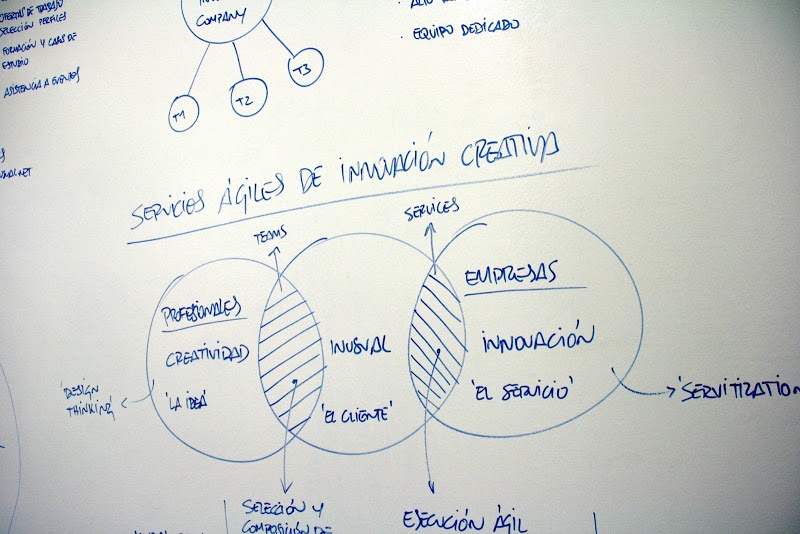 OFERTAS DE TRABAJO
SELECCIÓN PERFILES
FORMACIÓN Y CASOS DE
ESTUDIO
ASISTENCIA A EVENTOS
COMPANY
T1
T2
T3
EQUIPO DEDICADO
SERVICIOS ÁGILES DE INNOVACIÓN CREATIVA
TEAMS
SERVICES
PROFESIONALES
CREATIVIDAD
'LA IDEA'
INUSUAL
'EL CLIENTE'
EMPRESAS
INNOVACIÓN
'EL SERVICIO'
'DESIGN
THINKING'
'SERVITIZATION
SELECCIÓN Y
COMPOSICIÓN DE
EJECUCIÓN ÁGIL